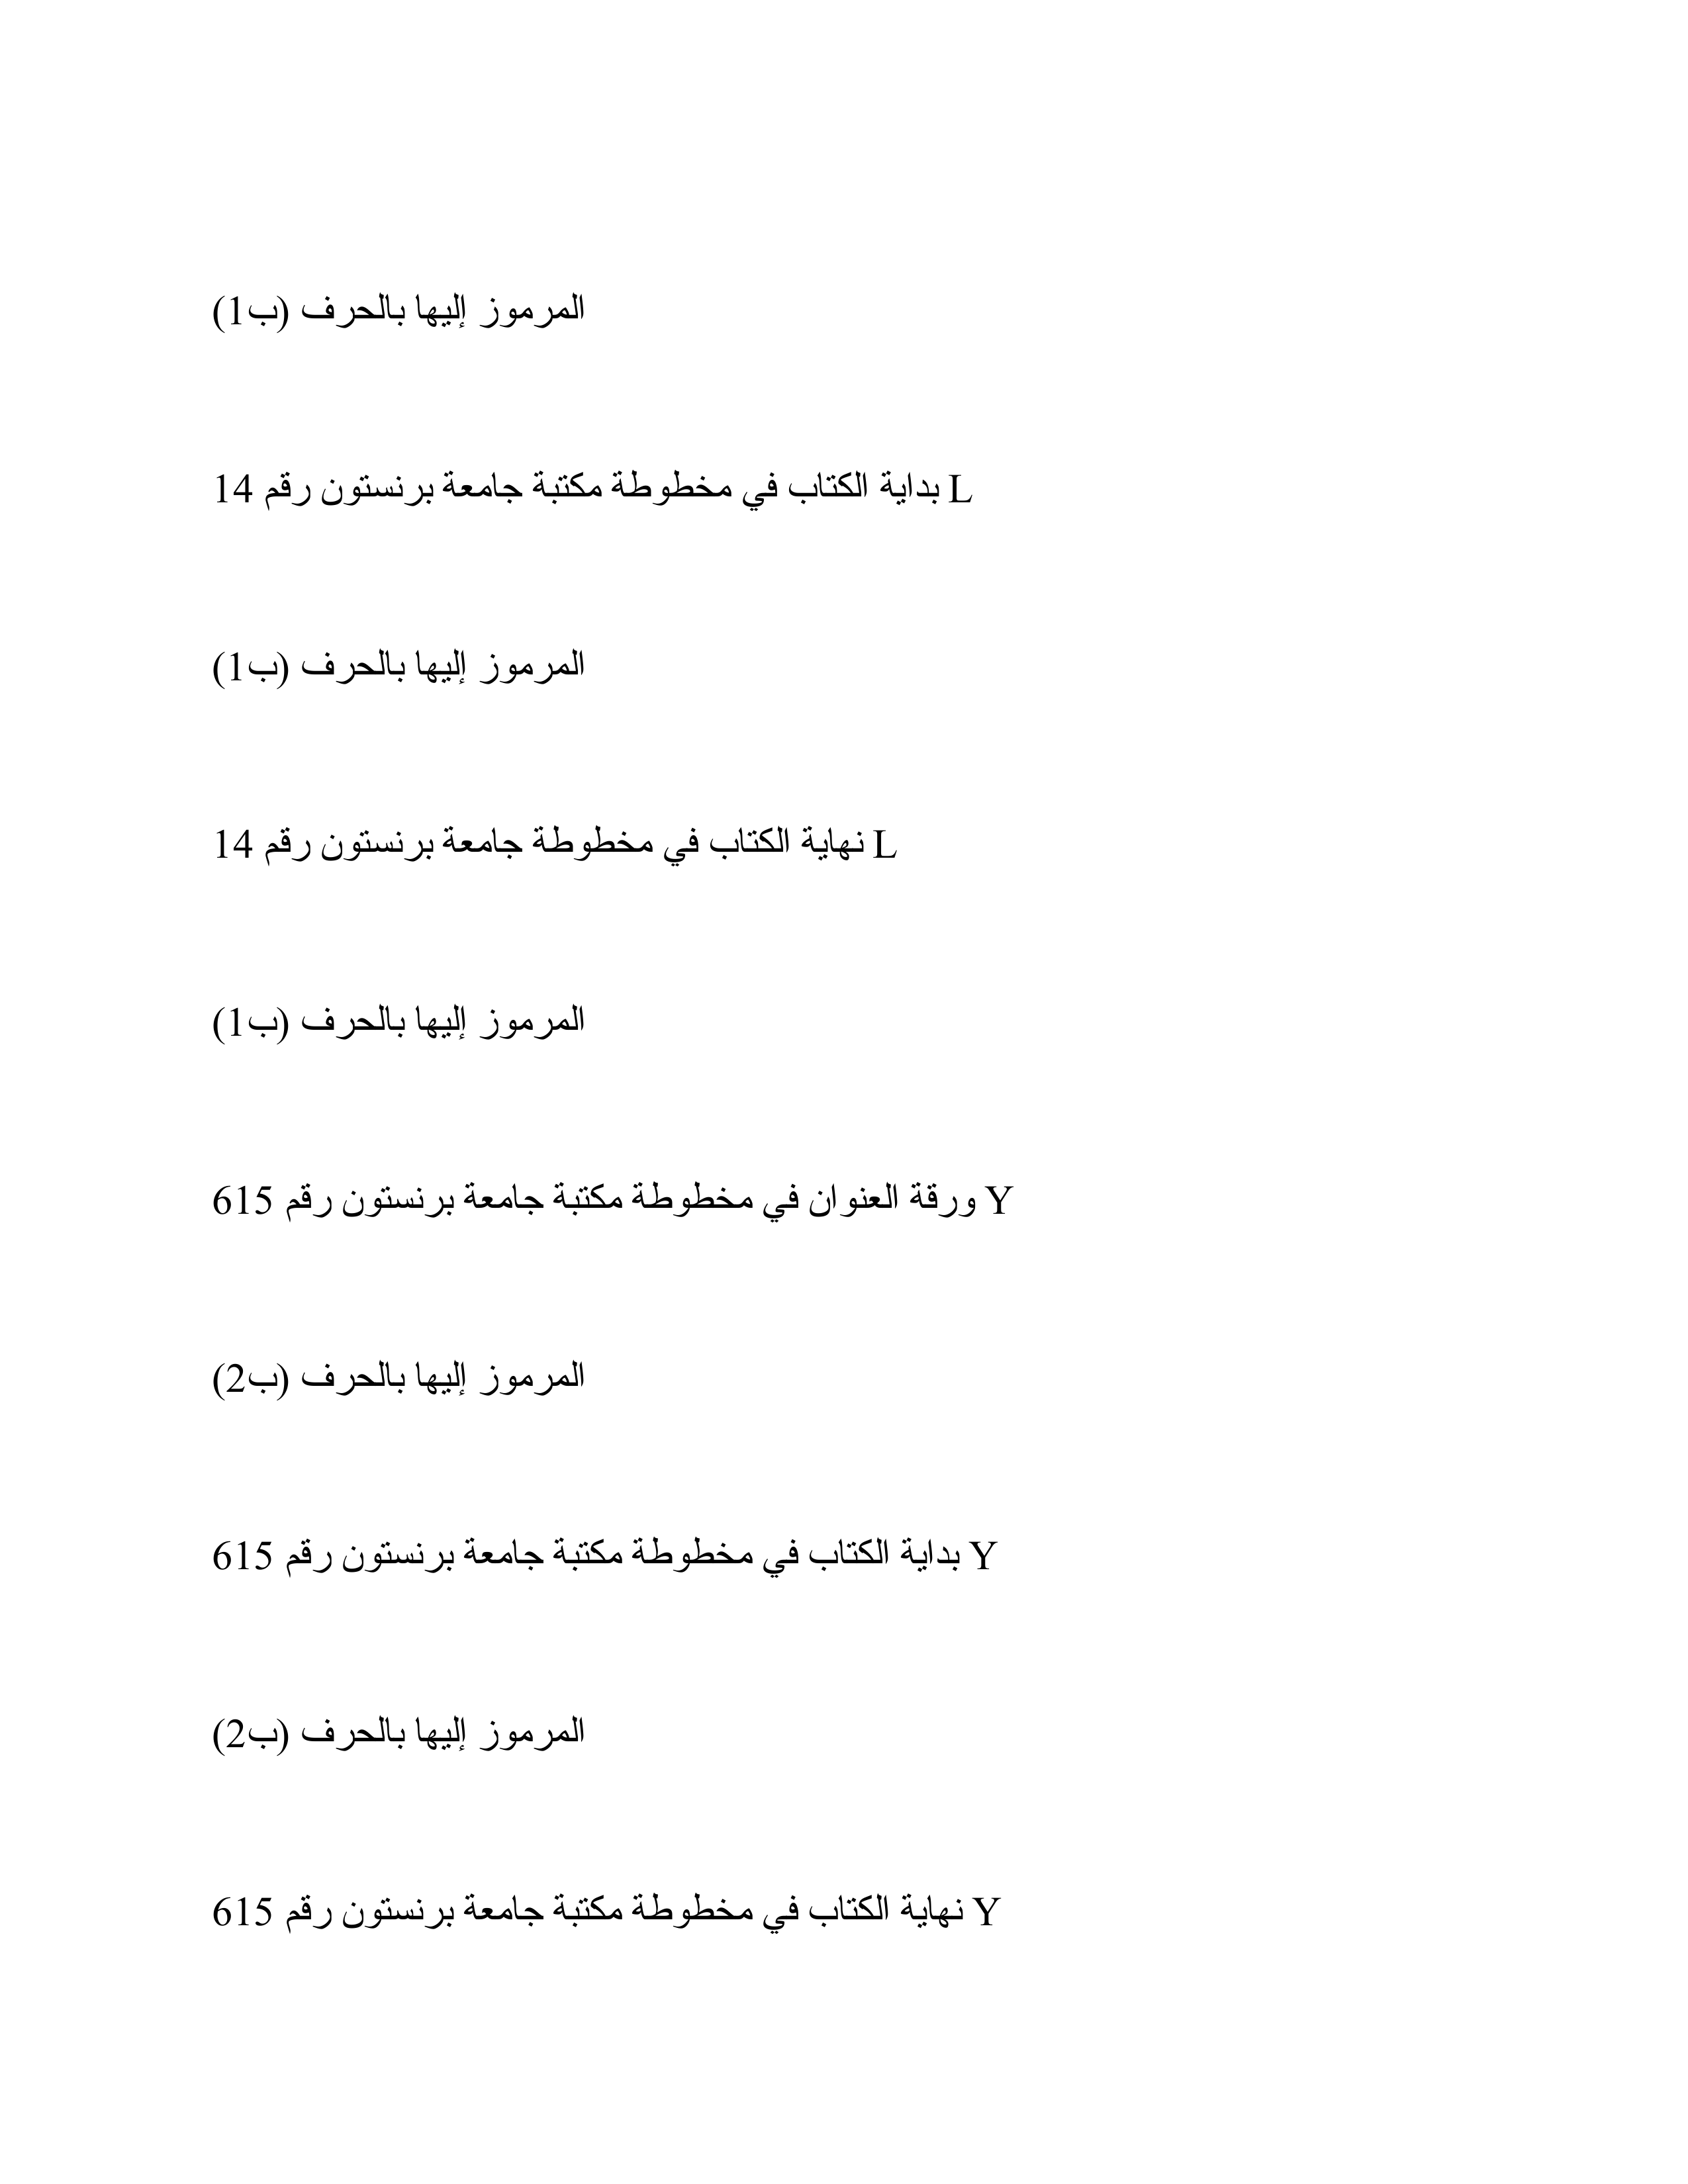 المرموز إليها بالحرف (ب1)
L بداية الكتاب في مخطوطة مكتبة جامعة برنستون رقم 14
المرموز إليها بالحرف (ب1)
L نهاية الكتاب في مخطوطة جامعة برنستون رقم 14
المرموز إليها بالحرف (ب1)
Y ورقة العنوان في مخطوطة مكتبة جامعة برنستون رقم 615
المرموز إليها بالحرف (ب2)
Y بداية الكتاب في مخطوطة مكتبة جامعة برنستون رقم 615
المرموز إليها بالحرف (ب2)
Y نهاية الكتاب في مخطوطة مكتبة جامعة برنستون رقم 615